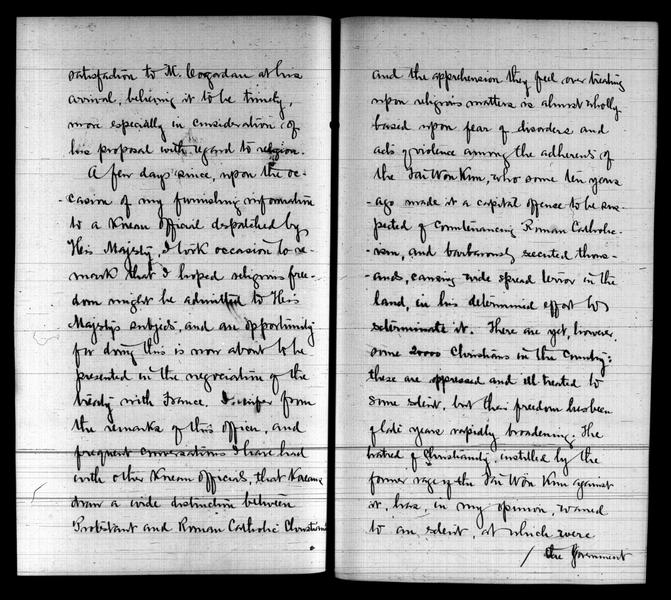 satisfaction to M. Cogordan at his
arrival, believing it to be timely,
more especially in consideration of
his proposal with regard to religion.
A few days since, upon the oc-
-casion of my furnishing information
to a Korean official dispatched by
His Majesty, I took occasion to re-
mark that I hoped religious free-
dom might be admitted to His
Majesty's subjects, and an opportunity
for doing this is now about to be
presented in the negociation of the
treaty with France. I infer from
the remarks of this officer, and
frequent conversations I have had
with other Korean officials, that Koreans
draw a wide distinction between
Protestant and Roman Catholic Christians
and the apprehension they feel over treating
upon religious matters is almost wholly
based upon fear of disorders and
acts of violence among the adherents of
the Tai Won Kun, who some ten years
-ago made it a capital offense to be sus-
pected of countenancing Roman Catholic-
-ism, and barbarously executed thous-
-ands, causing wide spread terror in the
land, in his determined effort to
exterminate it. There are yet, however,
some 20000 Christians in the country;
these are oppressed and ill treated to
some extent, but their freedom has been
of late years rapidly broadening. The
hatred of Christianity, instilled by the
former rage of the Tai Won Kun against
it, has, in my opinion, waned
to an extent, at which were
/ the Government